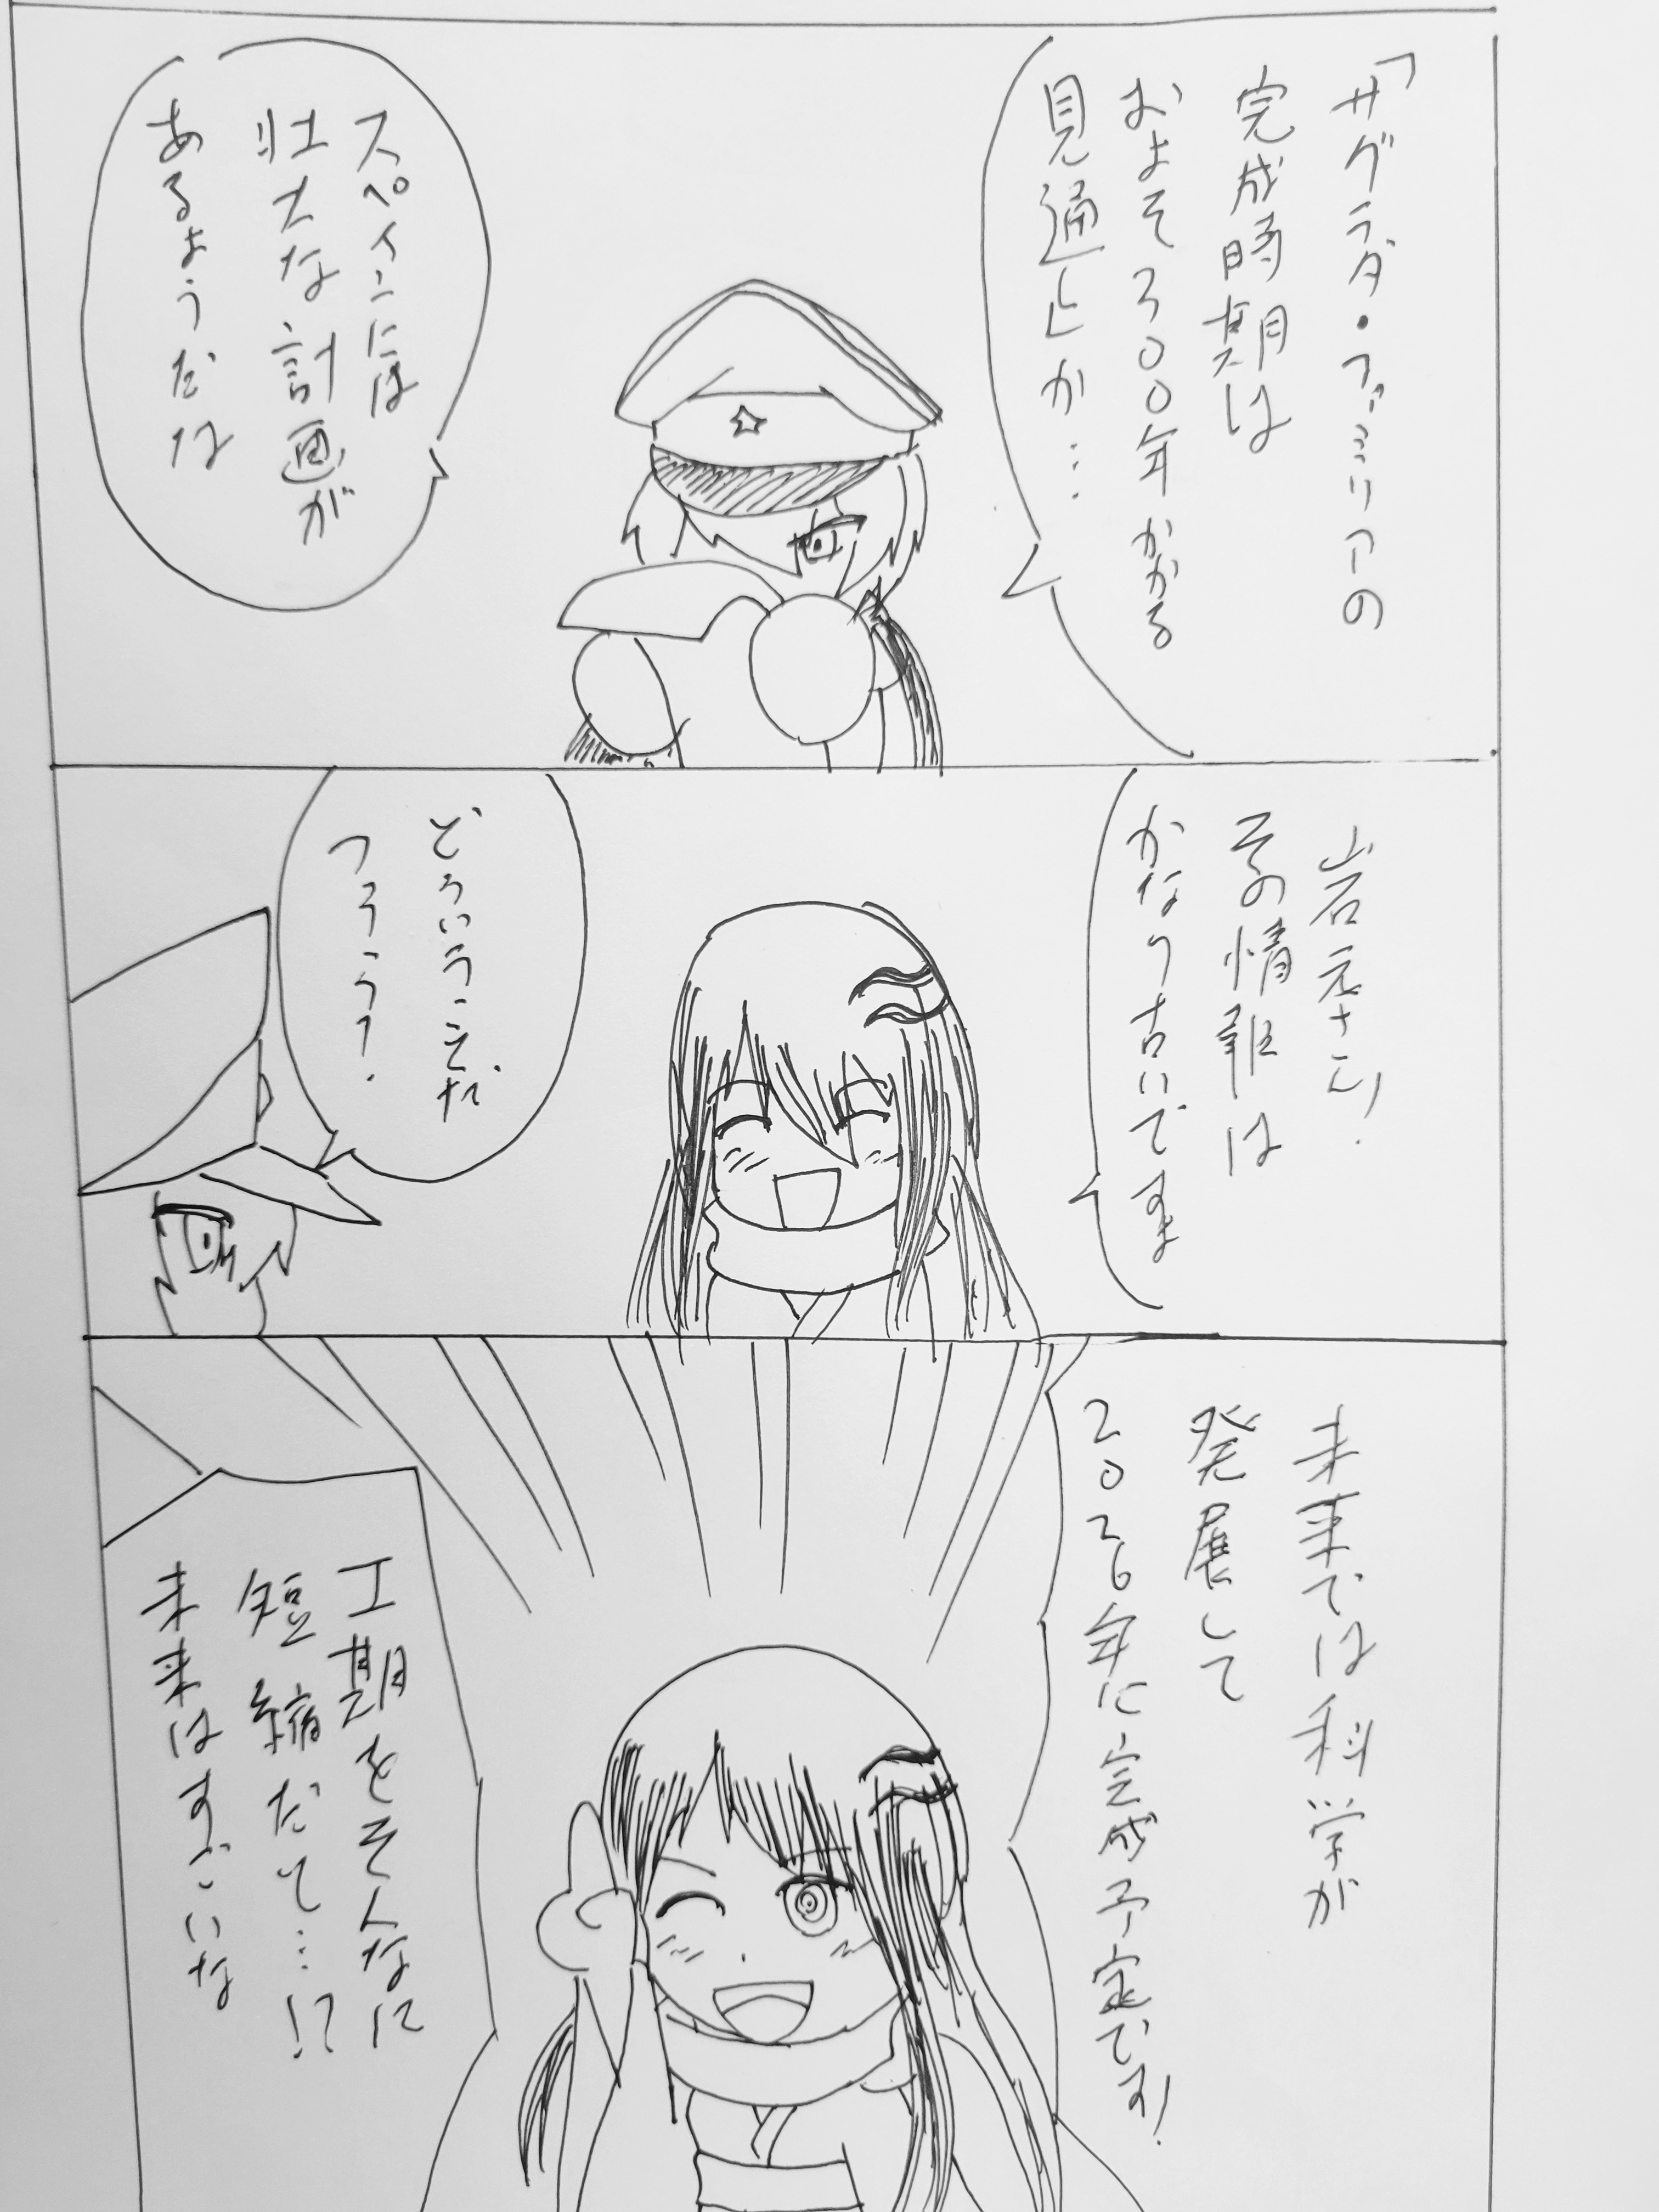 「サグラダ・ファミリアの
完成時期は
およそ300年かかる
見通し」か…
スペインには
壮大な計画が
あるようだな
岩元さん!
その情報は
かなり古いです
どういうことだ
フララ?
未来では科学が
発展して
2026年に完成予定です!
工期をそんなに
短縮だて…!?
未来はすごいな